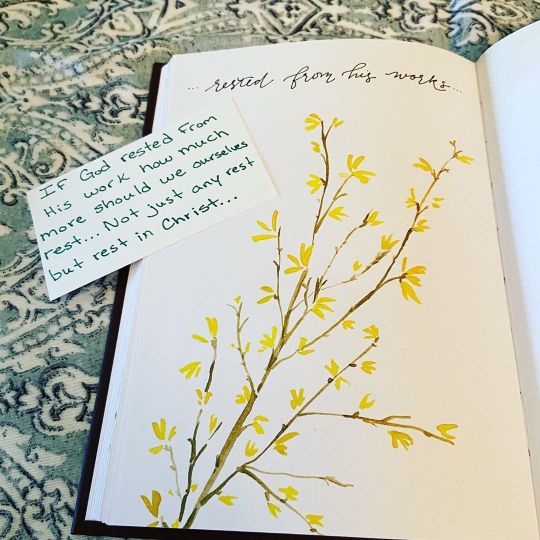 ... rested from his works...
IF God rested From
His work how much
more should we ourselves
rest... Not just any rest
but rest in Christ...